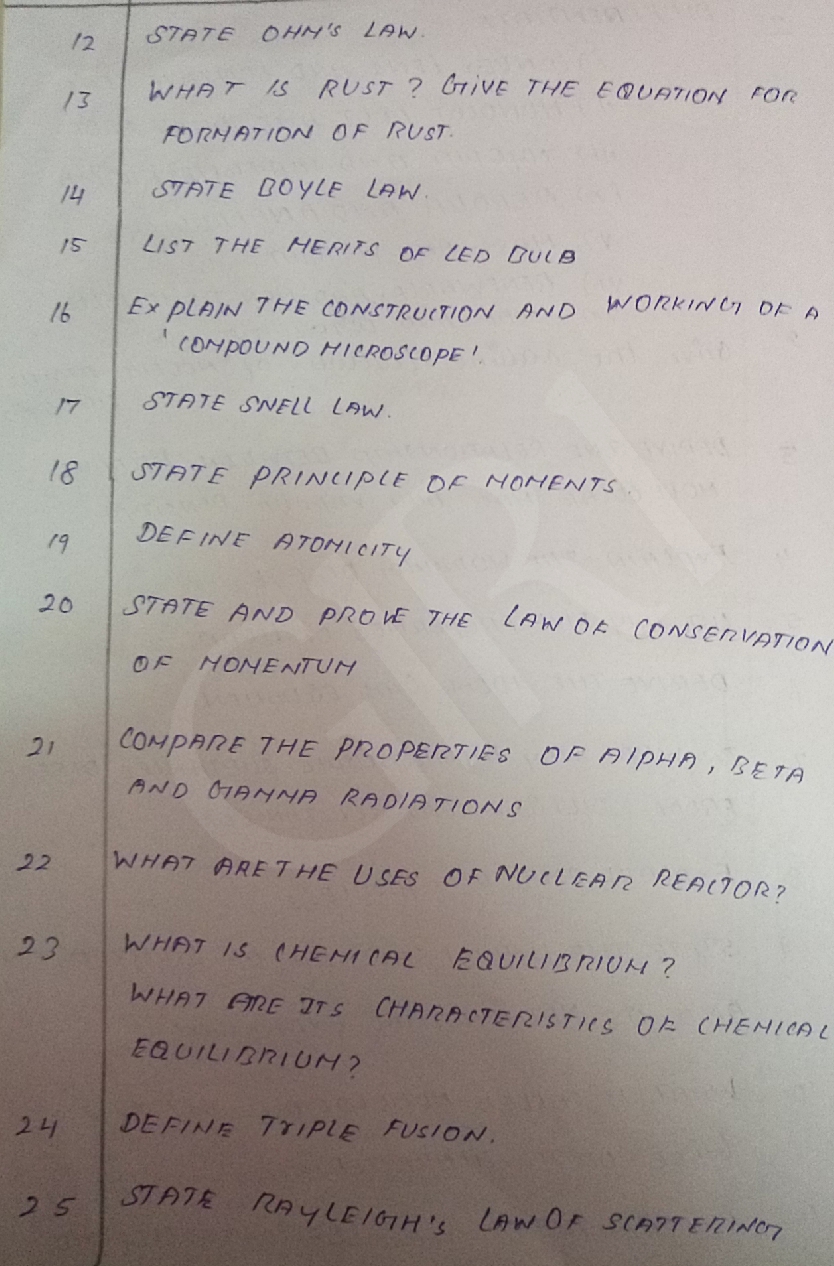 12 STATE OHM'S LAW.
13 WHAT IS RUST? GIVE THE EQUATION FOR
FORMATION OF RUST.
14 STATE BOYLE LAW.
15 LIST THE MERITS OF LED BULB
16 EXPLAIN THE CONSTRUCTION AND WORKING OF A
'COMPOUND MICROSCOPE'.
17 STATE SNELL LAW.
18 STATE PRINCIPLE OF MOMENTS.
19 DEFINE ATOMICITY
20 STATE AND PROVE THE LAW OF CONSERVATION
OF MOMENTUM
21 COMPARE THE PROPERTIES OF AlPHA, BETA
AND GAMMA RADIATIONS
22 WHAT ARE THE USES OF NUCLEAR REACTOR?
23 WHAT IS CHEMICAL EQUILIBRIUM?
WHAT ARE ITS CHARACTERISTICS OF CHEMICAL
EQUILIBRIUM?
24 DEFINE TRIPLE FUSION.
25 STATE RAYLEIGH'S LAW OF SCATTERING
GIRI